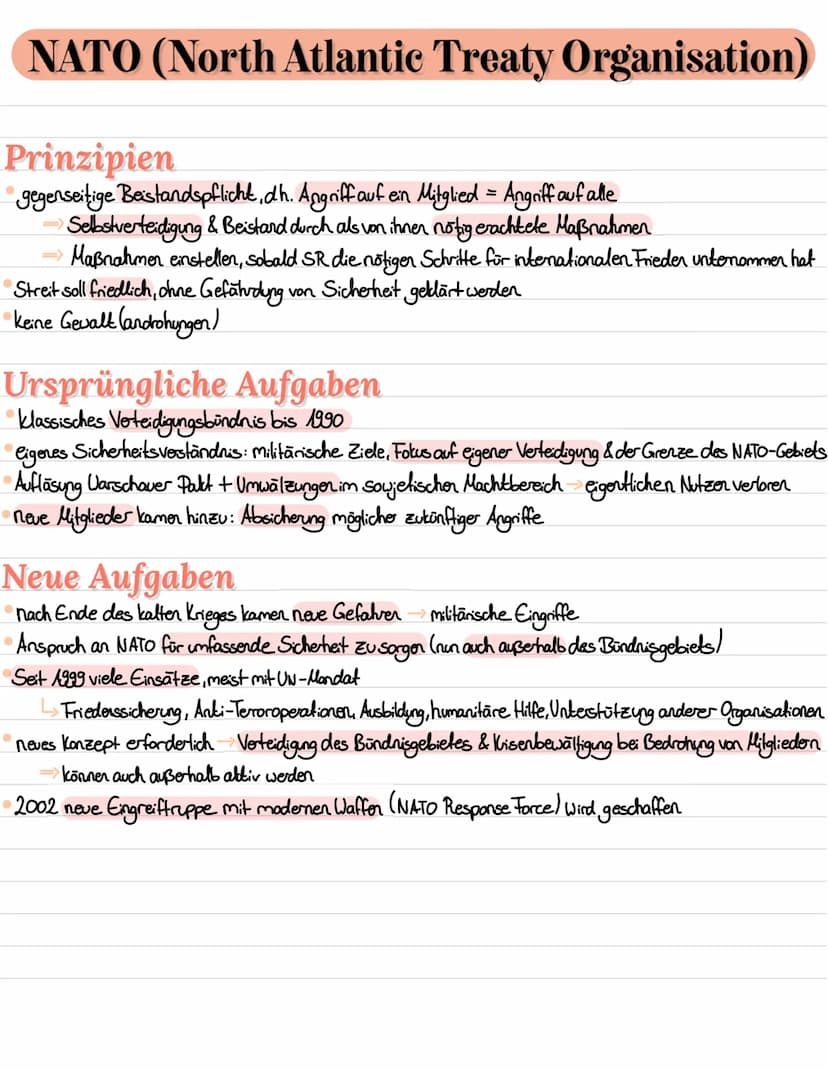 NATO (North Atlantic Treaty Organisation)
Prinzipien
• gegenseitige Beistandspflicht, d.h. Angriff auf ein Mitglied = Angriff auf alle
⇒ Selbstverteidigung & Beistand durch als von ihnen nötig erachtete Maßnahmen
⇒ Maßnahmen einstellen, sobald SR die nötigen Schritte für internationalen Frieden unternommen hat
• Streit soll friedlich, ohne Gefährdung von Sicherheit, geklärt werden
• keine Gewalt(androhungen)
Ursprüngliche Aufgaben
• klassisches Verteidigungsbündnis bis 1990
• eigenes Sicherheitsverständnis: militärische Ziele, Fokus auf eigener Verteidigung & der Grenze des NATO-Gebiets
• Auflösung Warschauer Pakt + Umwälzungen im sowjetischen Machtbereich → eigentlichen Nutzen verloren
• neue Mitglieder kamen hinzu: Absicherung möglicher zukünftiger Angriffe
Neue Aufgaben
• nach Ende des kalten Krieges kamen neue Gefahren → militärische Eingriffe
• Anspruch an NATO für umfassende Sicherheit zu sorgen (nun auch außerhalb des Bündnisgebiets)
• Seit 1999 viele Einsätze, meist mit UN-Mandat
↳ Friedenssicherung, Anti-Terroroperationen, Ausbildung, humanitäre Hilfe, Unterstützung anderer Organisationen
• neues Konzept erforderlich → Verteidigung des Bündnisgebietes & Krisenbewältigung bei Bedrohung von Mitgliedern
⇒ können auch außerhalb aktiv werden
• 2002 neue Eingreiftruppe mit modernen Waffen (NATO Response Force) wird geschaffen